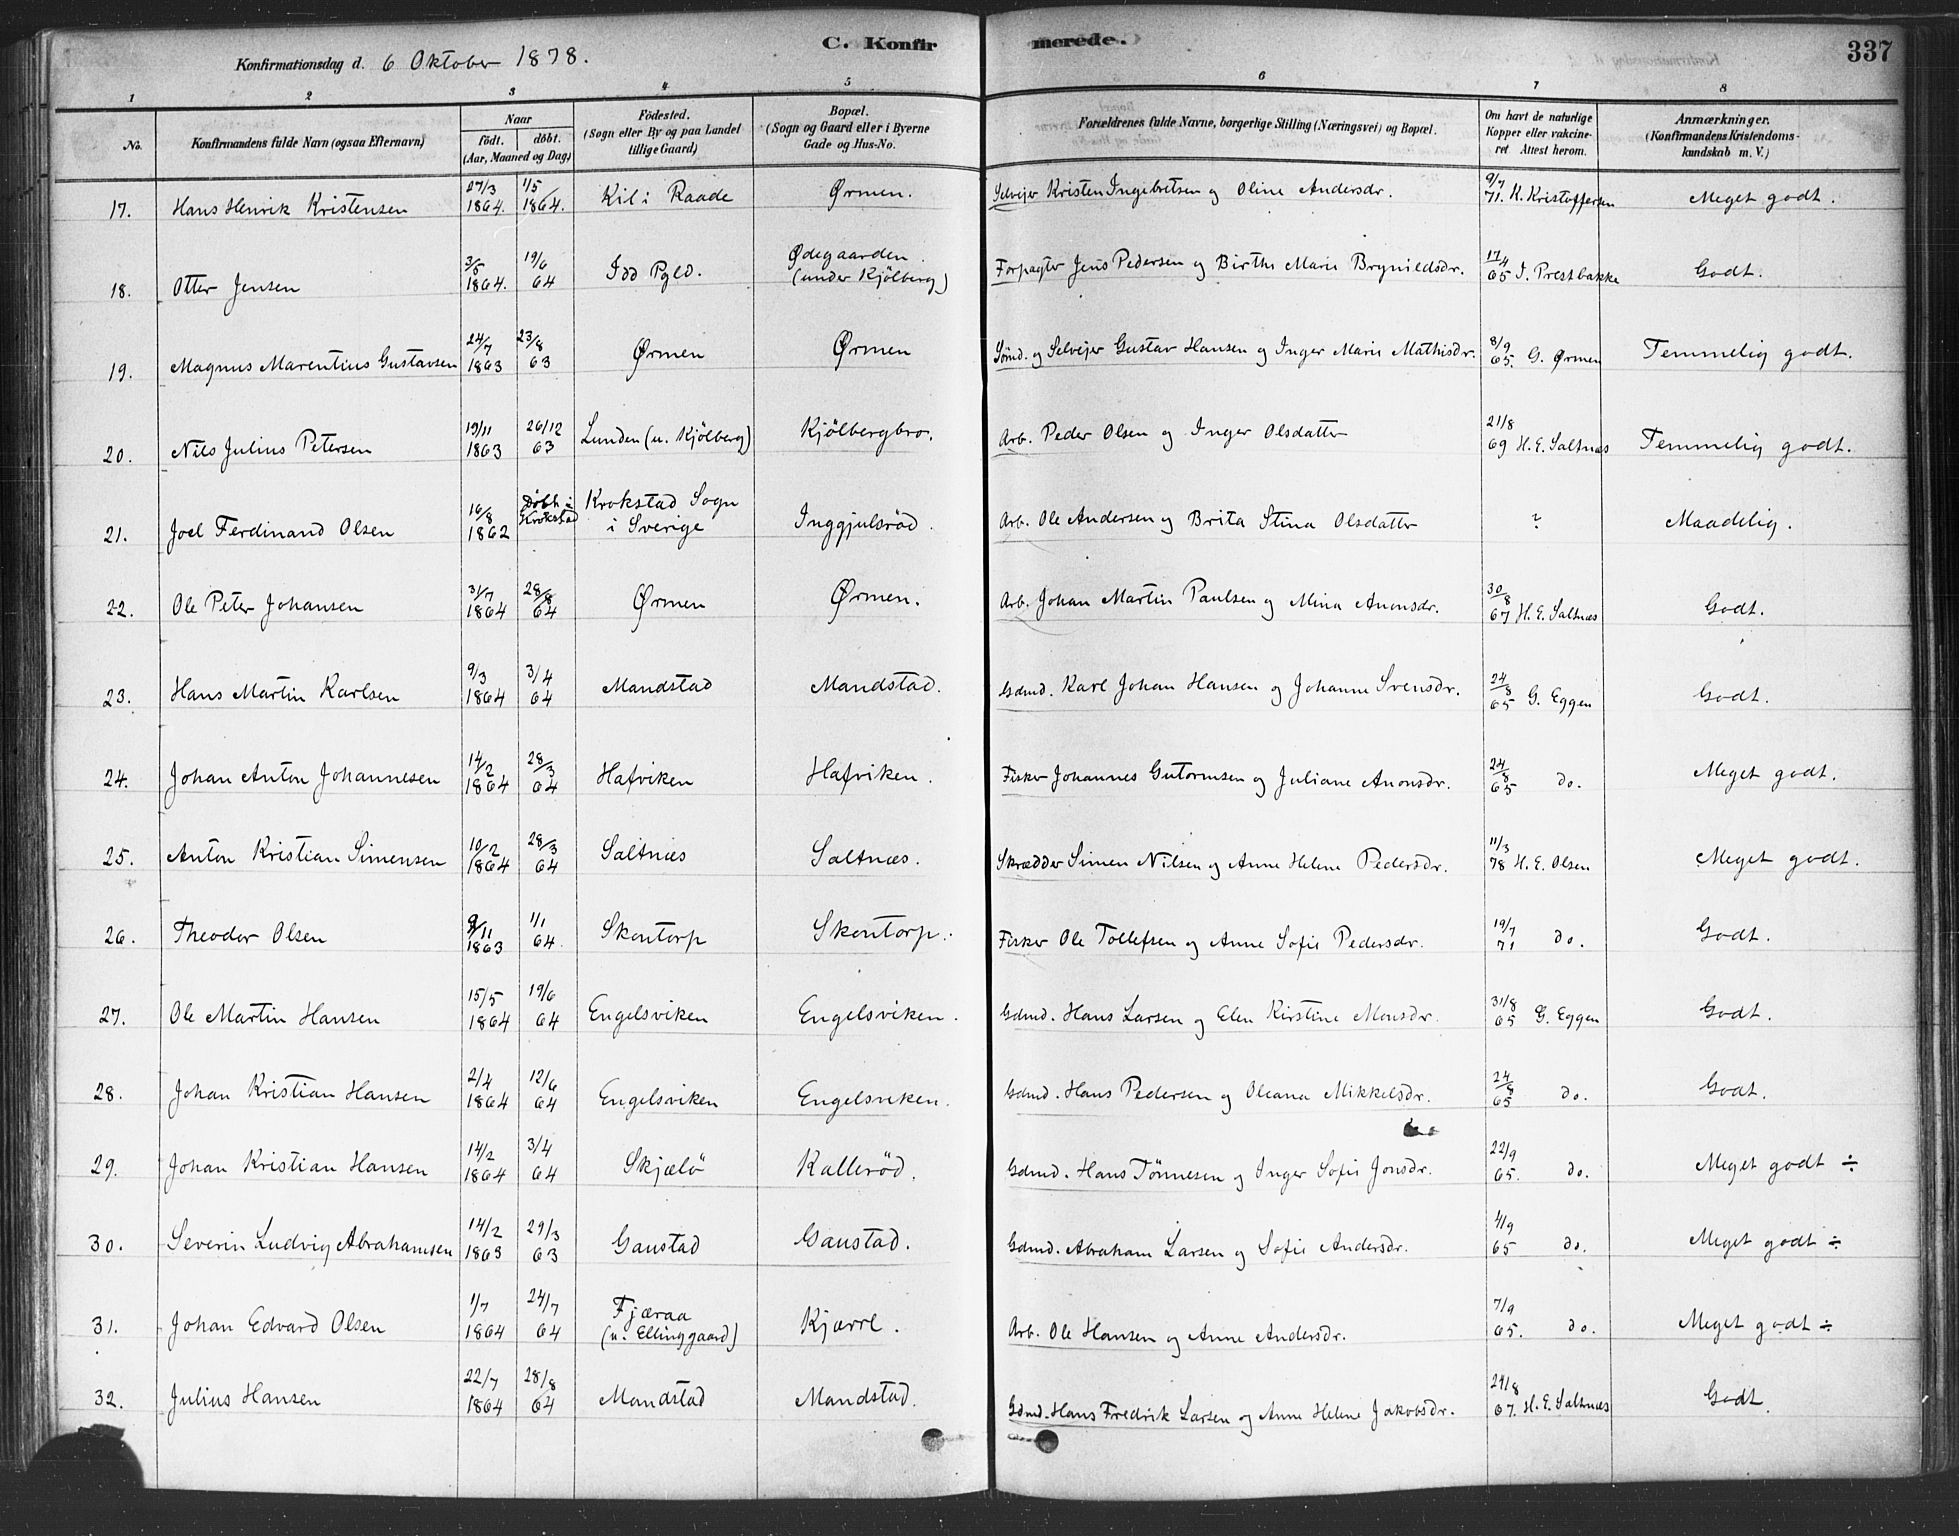 C. Konfirmerede.
337
Konfirmationsdag d. 6 Oktober 1878.
1 2 3 4 5 6 7 8
No.
Konfirmandens fulde Navn (ogsaa Efternavn)
Naar
födt. döbt.
(Aar, Maaned og Dag)
Födested.
(Sogn eller By og paa Landet
tillige Gaard)
Bopæl.
(Sogn og Gaard eller i Byerne
Gade og Hus-No.
Forældrenes fulde Navne, borgerlige Stilling (Næringsvei) og Bopæl.
Om havt de naturlige
Kopper eller vakcine-
ret Attest herom.
Anmærkninger.
(Konfirmandens Kristendoms-
kundskab m. V.)
17. Hans Henrik Kristensen 27/3 1864. 1/5 1864. Kil i Raade Ørmen. Selvejer Kristen Ingebretsen og Oline Andersdr. 9/7 71. K. Kristoffersen Meget godt.
18. Otter Jensen 3/5 1864. 19/6 64 Idd Pgld. Ødegaarden (under Kjölberg) Forpagter Jens Pedersen og Birthe Marie Brynildsdr. 17/4 65 I. Prestbakke Godt.
19. Magnus Marentius Gustavsen 24/7 1863 23/8 63 Ørmen Ørmen Sömd. og Selvejer Gustav Hansen og Inger Marie Mathisdr. 8/9 65. G. Ørmen Temmelig godt.
20. Nils Julius Petersen 19/11 1863 26/12 63 Lunden (u. Kjölberg) Kjölbergbro. Arb. Peder Olsen og Inger Olsdatter 21/8 69 H. E. Saltnæs Temmelig godt.
21. Joel Ferdinand Olsen 16/8 1862 Döbt i Krokstad Krokstad Sogn i Sverige Inggjulsröd. Arb. Ole Andersen og Brita Stina Olsdatter ? Maadelig.
22. Ole Peter Johansen 31/7 1864 28/8 64 Ørmen Ørmen. Arb. Johan Martin Paulsen og Mina Anonsdr. 30/8 67 H. E. Saltnæs Godt.
23. Hans Martin Karlsen 9/3 1864 3/4 64 Mandstad Mandstad. Gdmd. Karl Johan Hansen og Johanne Svensdr. 24/8 65 G. Eggen Godt.
24. Johan Anton Johannesen 14/2 1864 28/3 64 Hafviken Hafviken. Fisker Johannes Gutormsen og Juliane Anonsdr. 24/8 65 do. Meget godt.
25. Anton Kristian Simensen 10/2 1864 28/3 64 Saltnæs Saltnæs. Skrædder Simen Nilsen og Anne Helene Pedersdr. 11/3 78 H. E. Olsen Meget godt.
26. Theodor Olsen 9/11 1863 1/1 64. Skontorp Skontorp. Fisker Ole Tollefsen og Anne Sofie Pedersdr. 19/7 71 do. Godt.
27. Ole Martin Hansen 15/5 1864 19/6 64 Engelsviken Engelsviken. Gdmd. Hans Larsen og Elen Kirstine Monsdr. 31/8 65 G. Eggen Godt.
28. Johan Kristian Hansen 2/4 1864 12/6 64 Engelsviken Engelsviken. Gdmd. Hans Pedersen og Oleana Mikkelsdr. 24/8 65 do. Godt.
29. Johan Kristian Hansen 14/2 1864 3/4 64 Skjælö Kalleröd. Gdmd. Hans Tönnesen og Inger Sofie Jonsdr. 22/9 65. do. Meget godt ÷
30. Severin Ludvig Abrahamsen 14/2 1863 29/3 63 Gaustad Gaustad. Gdmd. Abraham Larsen og Sofie Andersdr. 4/9 65 do. Meget godt ÷
31. Johan Edvard Olsen 1/7 1864 24/7 64 Fjæraa (u. Elinggaard) Kjærre. Arb. Ole Hansen og Anne Andersdr. 7/9 65. do. Meget godt ÷
32. Julius Hansen 22/7 1864 28/8 64 Mandstad Mandstad. Gdmd. Hans Fredrik Larsen og Anne Helene Jakobsdr. 29/8 67. H. E. Saltnæs Godt.